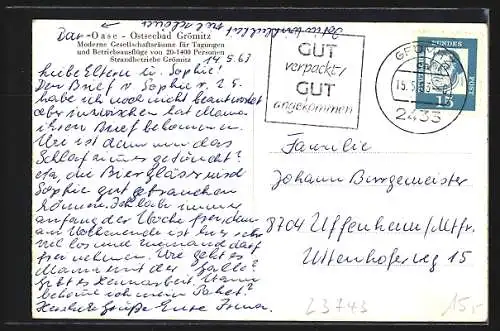 Das „Oase" – Ostseebad Grömitz
Moderne Gesellschaftsräume für Tagungen
und Betriebsausflüge von 20-1400 Personen
Strandbetriebe Grömitz
14.5.63
Liebe Eltern u. Sophie!
Den Brief v. Sophie v. 2.5.
habe ich noch nicht beantwortet
aber inzwischen hat Mama
ihren Brief bekommen.
Wie ist denn nun das
Schlafzimmer gedünckt?
Ja, die Biergläser wird
Sophie gut gebrauchen
können. Ich habe immer
anfang der Woche frei, denn
am Wochenende ist hier sehr
viel los und niemand darf
frei nehmen. Wie geht es
Mama mit der Galle?
Gibt es Heimarbeit. Wann
bekomme ich mein Paket?
Herzliche Grüße Eure Irma.
GUT
verpackt,
GUT
angekommen
15.5.
2433
DEUTSCHE BUNDESPOST
15
Familie
Johann Burgemeister
8704 Uffenheim/Mfr.
Uttenhoferweg 15
23743
15,-